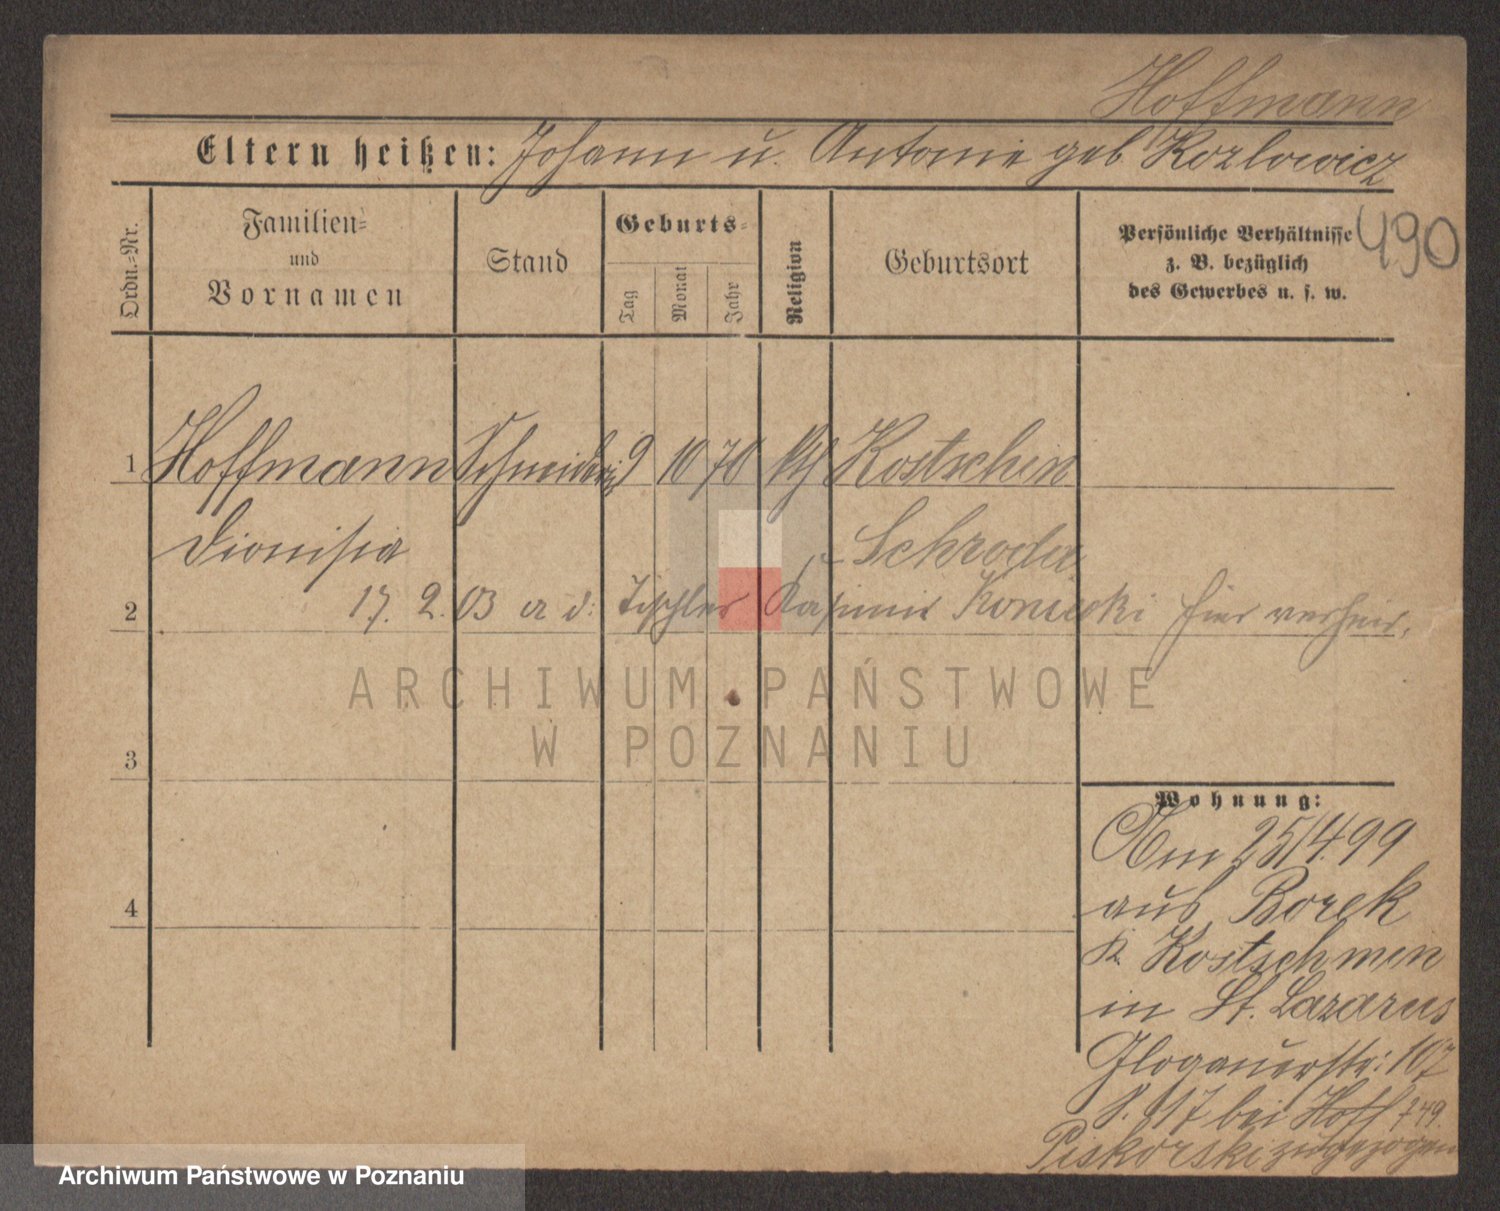 Hoffmann
Eltern heißen: Johann u. Antonie geb Kozlowicz
Ordn.-Nr.
Familien- und Vornamen
Stand
Geburts-
Tag
Monat
Jahr
Religion
Geburtsort
Persönliche Verhältnisse
z. B. bezüglich
des Gewerbes u. s. w.
490
1 Hoffmann Schneiderin 9 10 70 kth Kostschin
Dionisia Schroda
2 17. 2. 03 a d. Tischler Kasimir Koniecki hier verheir.
3
4
Wohnung:
Am 25/4.99
aus Borek
k. Kostschmin
in St. Lazarus
Glogauerstr: 107
S. 117 bei Hoff
Piskorski zugezogen
ARCHIWUM PAŃSTWOWE
W POZNANIU
Archiwum Państwowe w Poznaniu